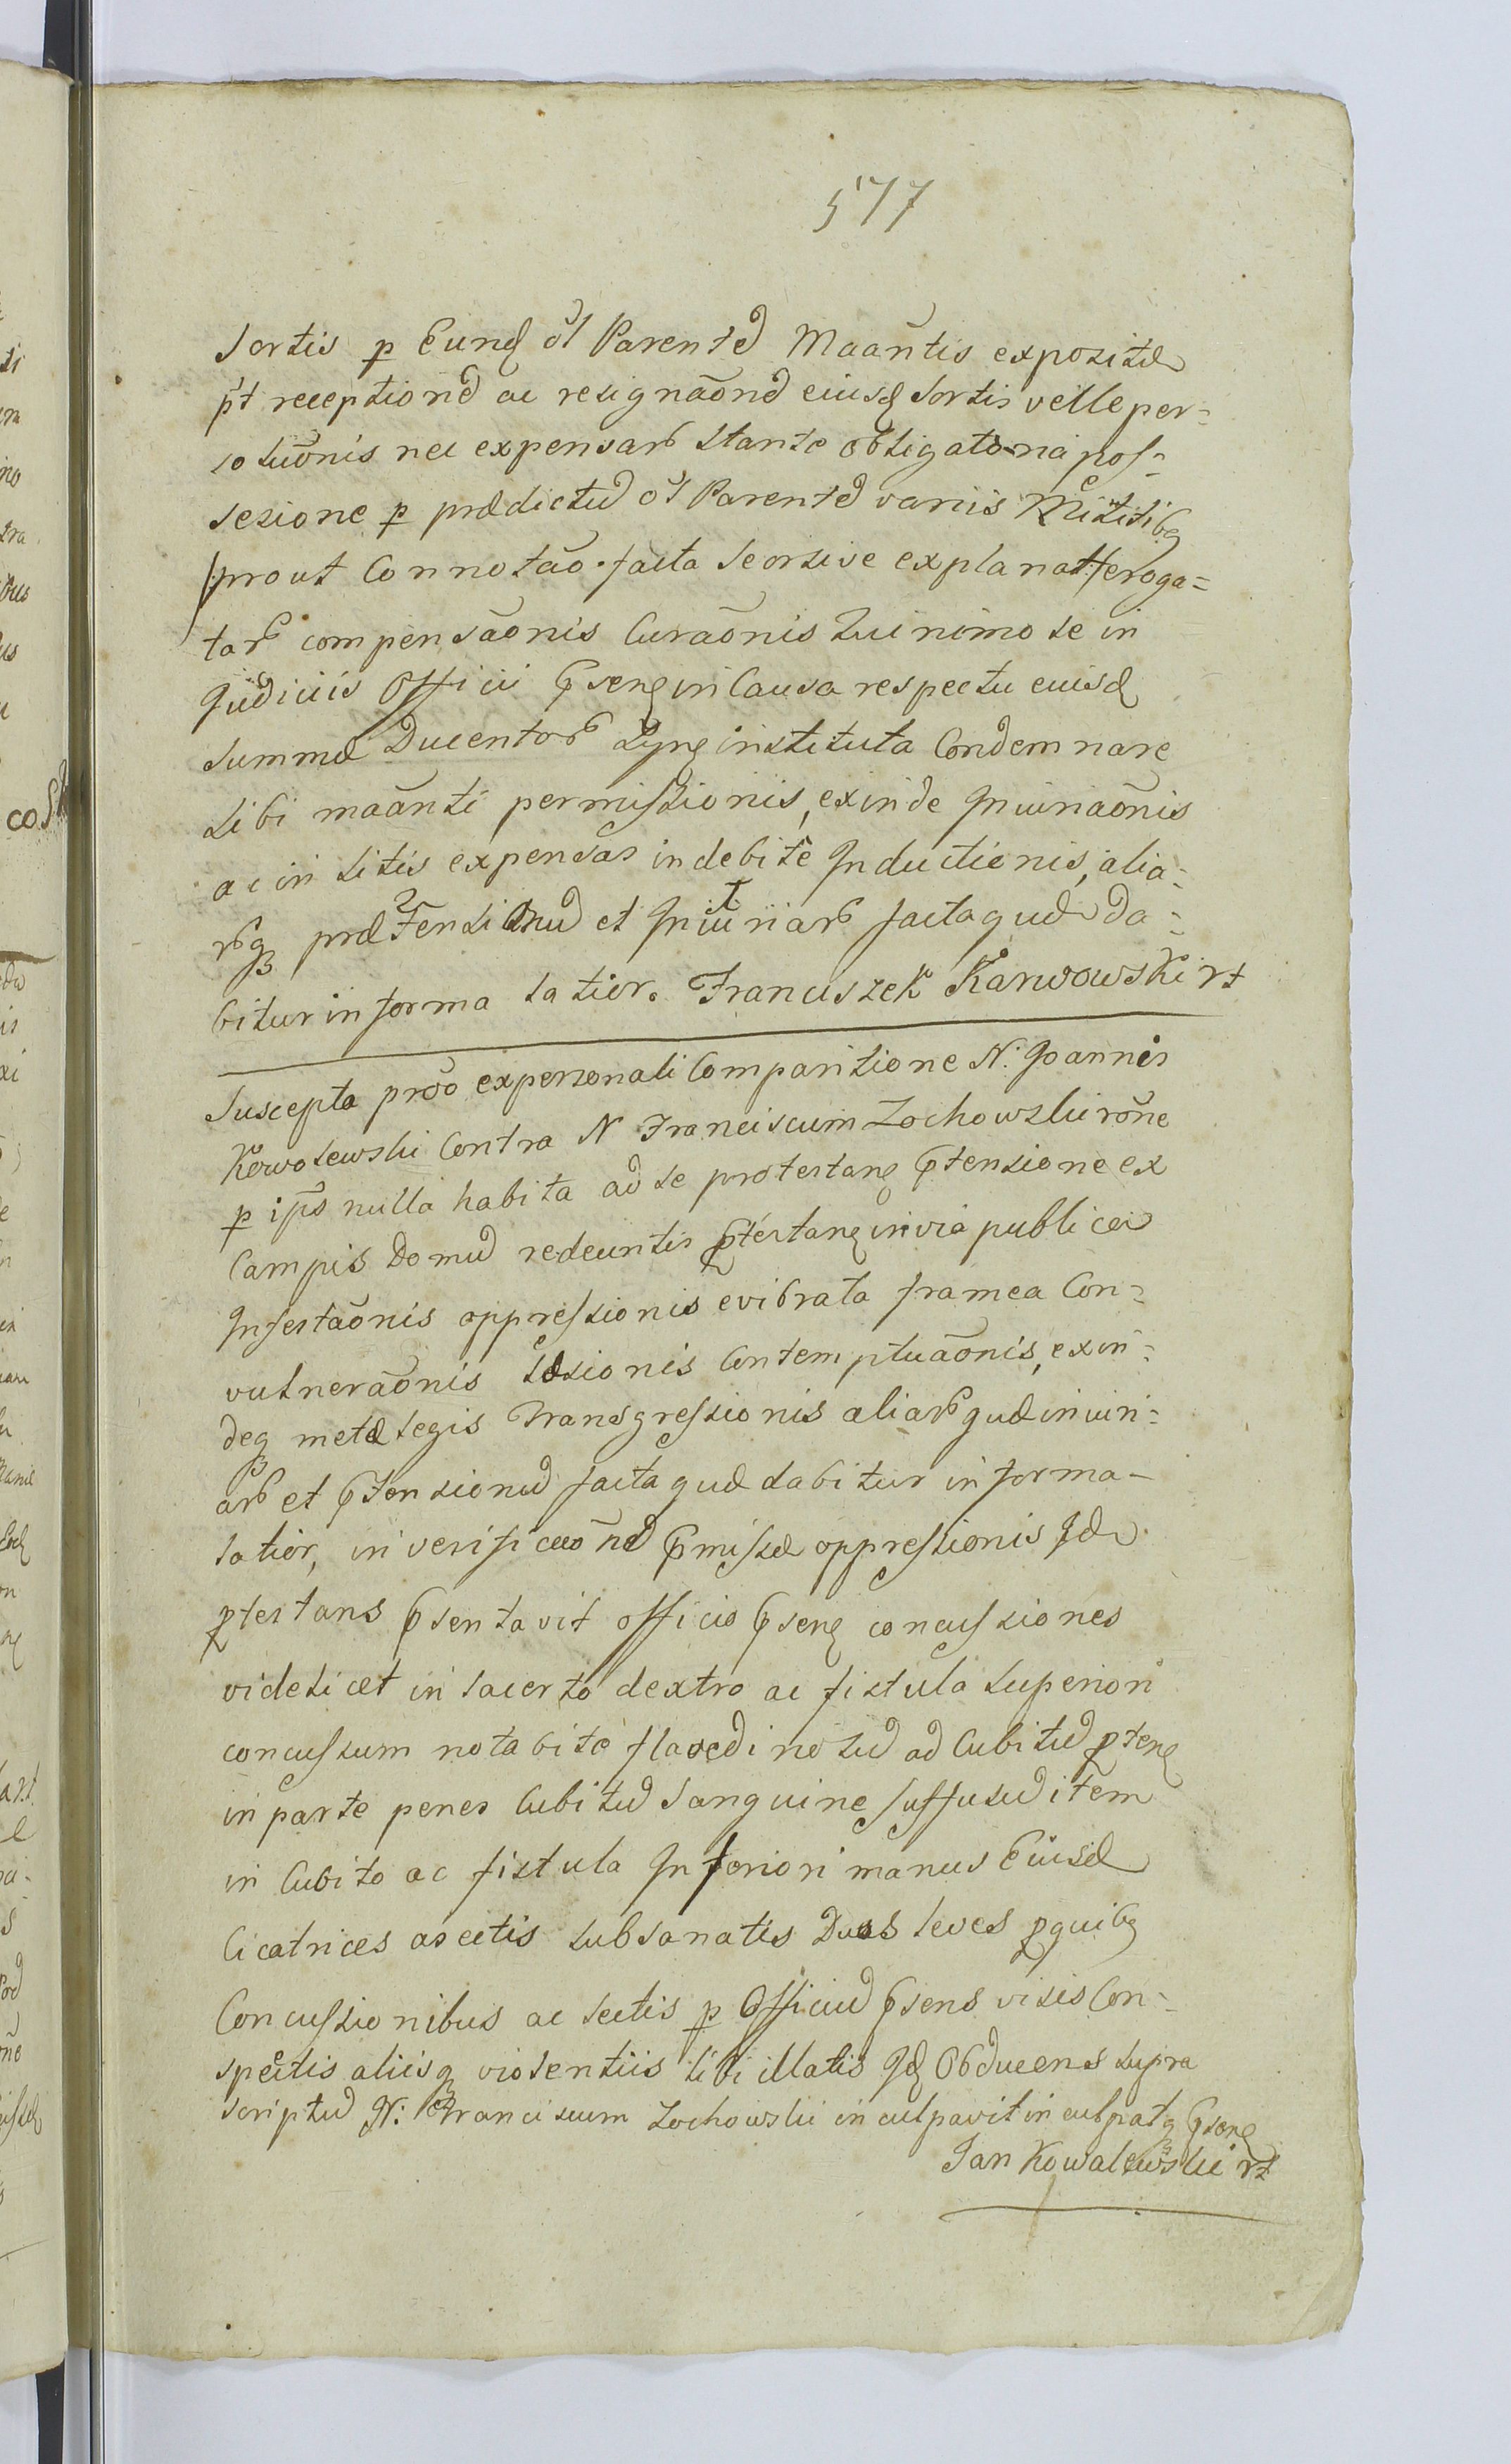 577
Sortis p Eund ol Parentem Maantis expositæ
pt receptionem ac resignaonem eiusd Sortis velle per=
soluonis nec expensarum stante obligatoria pos=
sesione p prædictum ol Parentem variis Militibq
/prout Connotao facta Seorsive explanat/ eroga=
tarum compensaonis Curaonis Quinimo se in
Judiciis Officii Psen in Causa respectu euisd
Summæ Ducentorum Tynf instituta Condemnare
Sibi maanti permissionis, exinde Iniuriaonis
ac in litis expensas indebite Inductionis, alia=
rumq prætensionum et Iniuriarum facta quæ da=
bitur in forma latior. Franciszek Karwowski
Suscepta prõo ex personali Comparitione N. Joannis
Kowolewski Contra N Franciscum Zochowski rõne
p ips nulla habita ad se protestan Ptensione ex
Campis Domum redeuntis Ptestan in via publica
Infestaonis oppressionis evibrata framea Con=
vulneraonis Læsionis Contemptuaonis, exin=
deq metæ legis Transgressionis aliarumq iniuri=
arum et Ptensionum facta quæ dabitur in forma
latior, in verificaonem Pmissæ oppressionis Id
ptestans Psentavit officio Psen concussiones
videlicet in lacerto dextro ac fistula superiori
concussum notabite flavedine Sud ad Cubitum pten
in parte penes Cubitum Sanguine suffusum item
in Cubito ac fistula Inferiori manus Eiusd
Cicatrices asectis subsanatis Duas leves pquibq
Concussionibus ac sectis p Officium Psens visis Con=
spectis aliisq violentiis sibi illatis Id Obducens supra
scriptum N: Franciscum Zochowski inculpavit inculpatq Psen
Jan Kowalewski